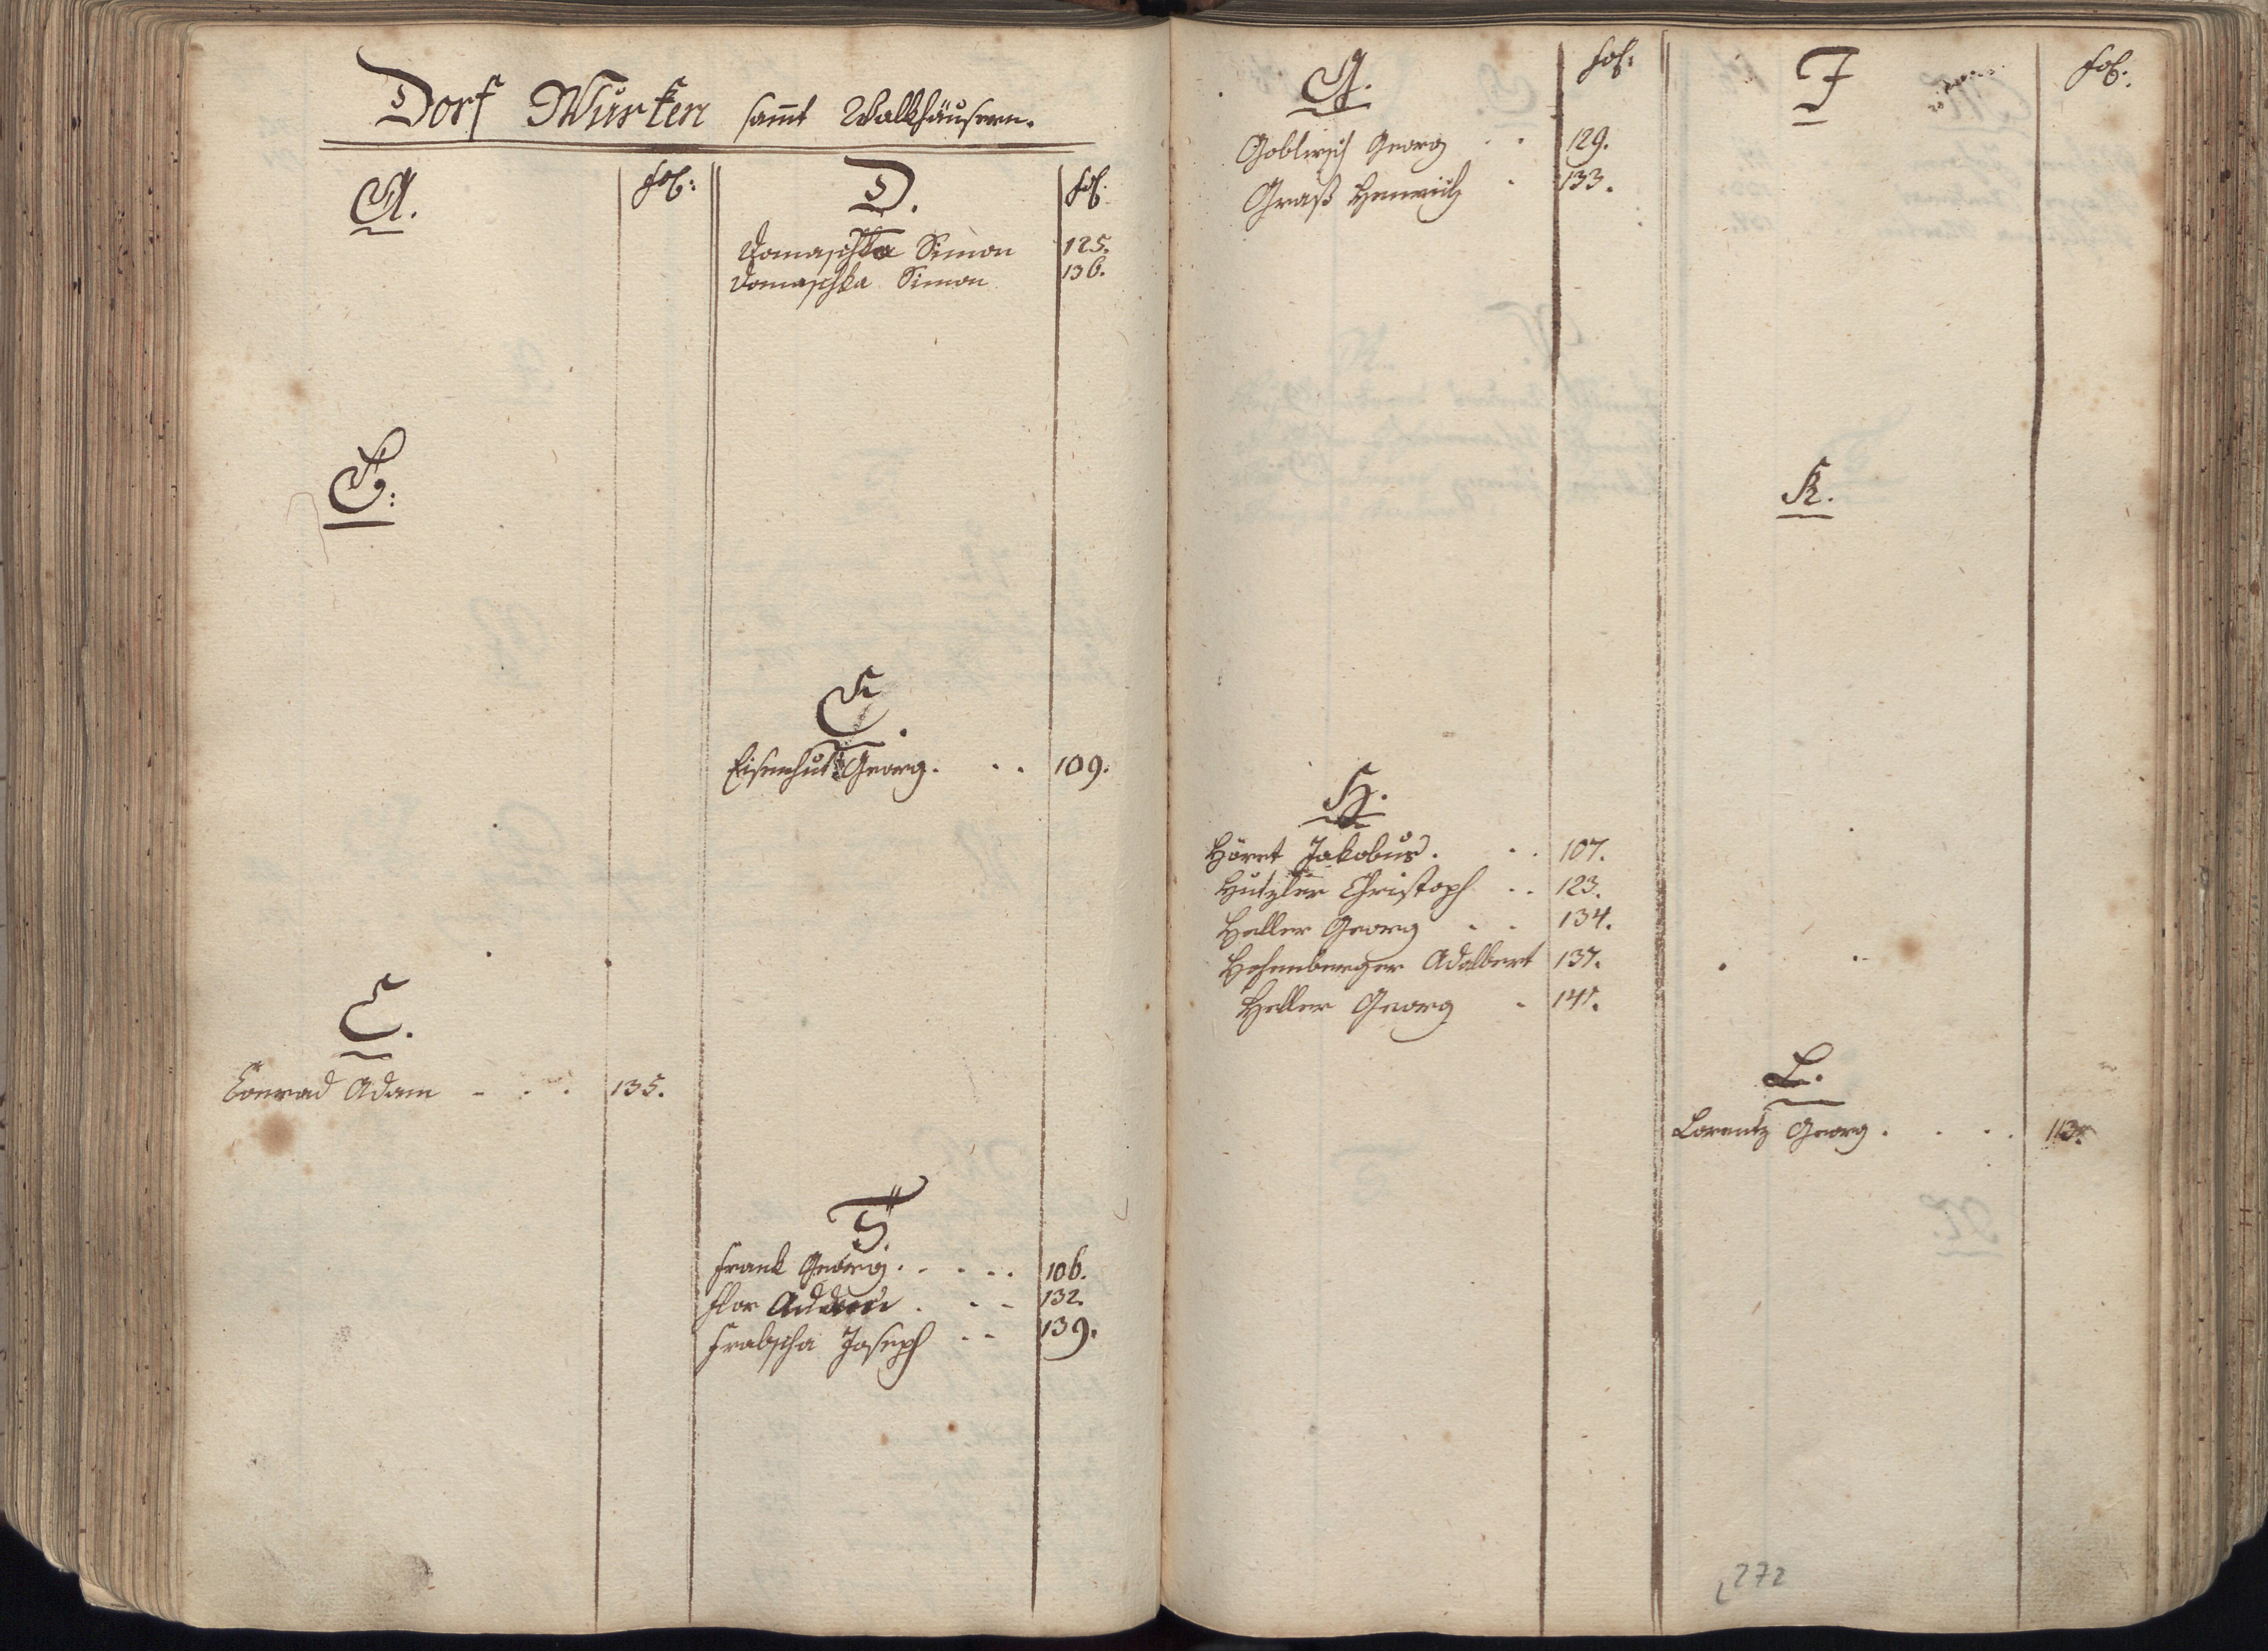 Dorf Wurken sam̅t Walkhäusern.
A. fol:
B:
C.
Conrad Adam - . . 135.
D. fol.
Domaschka Simon 125.
Domaschka Simon 136.
E.
Eisenhut Georg. . . 109.
F.
Frank Georg. . . . . 106.
Flor . . - 132.
Frabscha Joseph . - 139.
G. fol:
Goblirsch Georg . . 129.
Graß Heinrich . 133.
H.
Höret Jakobus. . . 107.
Hutzler Christoph . . 123.
Heller Georg . . 134.
Hehenberger Adalbert 137.
Heller Georg . 141.
I fol.
K.
L.
Lorentz Georg. . . . 113.
272